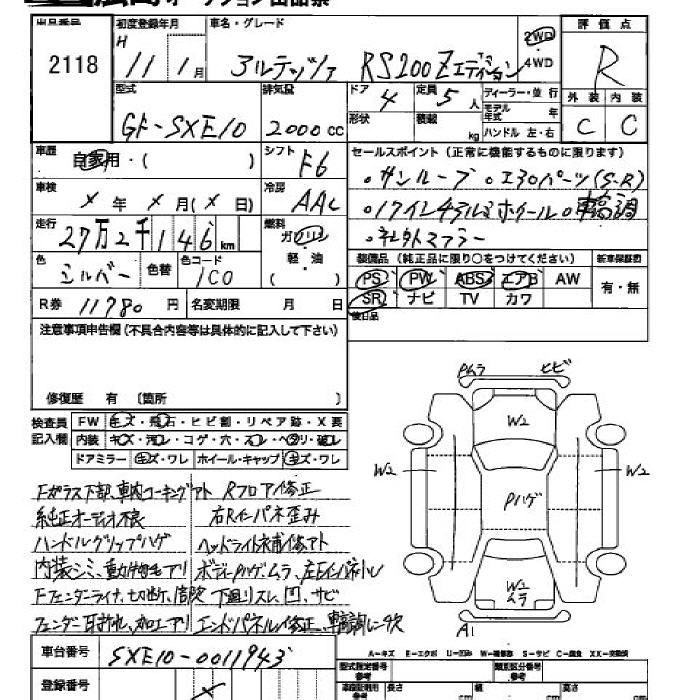 出品番号 初度登録年月 車名・グレード 評価点
2118 H 11年 1月 アルテッツァ RS200Zエディション 2WD 4WD R
型式 排気量 ドア 4 定員 5人 ディーラー・並行 外装 内装
GF-SXE10 2000cc 形状 積載 kg モデル年式 年 ハンドル 左・右 C C
車歴 自家用・( ) シフト F6 セールスポイント (正常に機能するものに限ります)
車検 X年 X月(X日) 冷房 AAC 。サンルーフ 。エアロパーツ(S-R)
走行 27万2千146km 燃料 ガソリン 軽油 ( ) 。17インチアルミホイール 。車高調
。社外マフラー
色 シルバー 色替 色コード 1C0 装備品 (純正品に限り○をつけてください) 新車保証図
PS PW ABS エアB AW 有・無
R券 11780円 名変期限 月 日 SR ナビ TV カワ
注意事項申告欄 (不具合内容等は具体的に記入して下さい) 後日品
修復歴 有 〔箇所 〕
検査員記入欄 FW キズ・飛石・ヒビ割・リペア跡・X要
内装 キズ・汚レ・コゲ・穴・スレ・ヘタリ・破レ
ドアミラー キズ・ワレ ホイール・キャップ キズ・ワレ
Fガラス下部、車内コーキングアト Rフロア修正
純正オーディオ不良 右Rインパネ歪み
ハンドルグリップハゲ ヘッドライト補修アト
内装シミ、動物毛アリ ボディPハゲ、ムラ、左Eインパネ小U
Fフェンダーライナ、切断、 下廻リスレ、凹、サビ
フェンダー耳折れ、加工アリ エンドパネル修正、車高調
Pムラ ヒビ
W2
W2 Pハゲ W2
W2
ムラ
A1
A-キズ E-エクボ U-凹み W-補修跡 S-サビ C-腐食 XX-交換済
車台番号 SXE10-0011943 型式指定番号 類別区分番号
登録番号 X 長さ cm 幅 cm 高さ cm